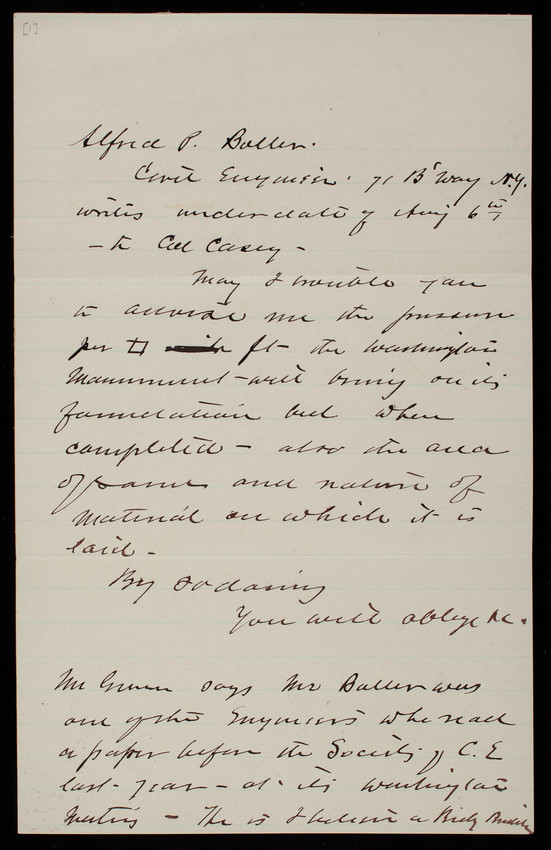 [1]
Alfred P. Boller.
Civil Engineer. 71 B'way N.Y.
writes under date of Aug 6th
- to Col Casey -
May I trouble you
to advise me the pressure
per □ ft the Washington
Monument will bring on its
foundation bed when
completed - also the area
of same and nature of
material on which it is
laid -
By so doing
You will oblige &c.
Mr Green says Mr Boller was
one of the Engineers who read
a paper before the Society of C.E
last year - at its Washington
Meeting - He is I believe a Bridge Builder